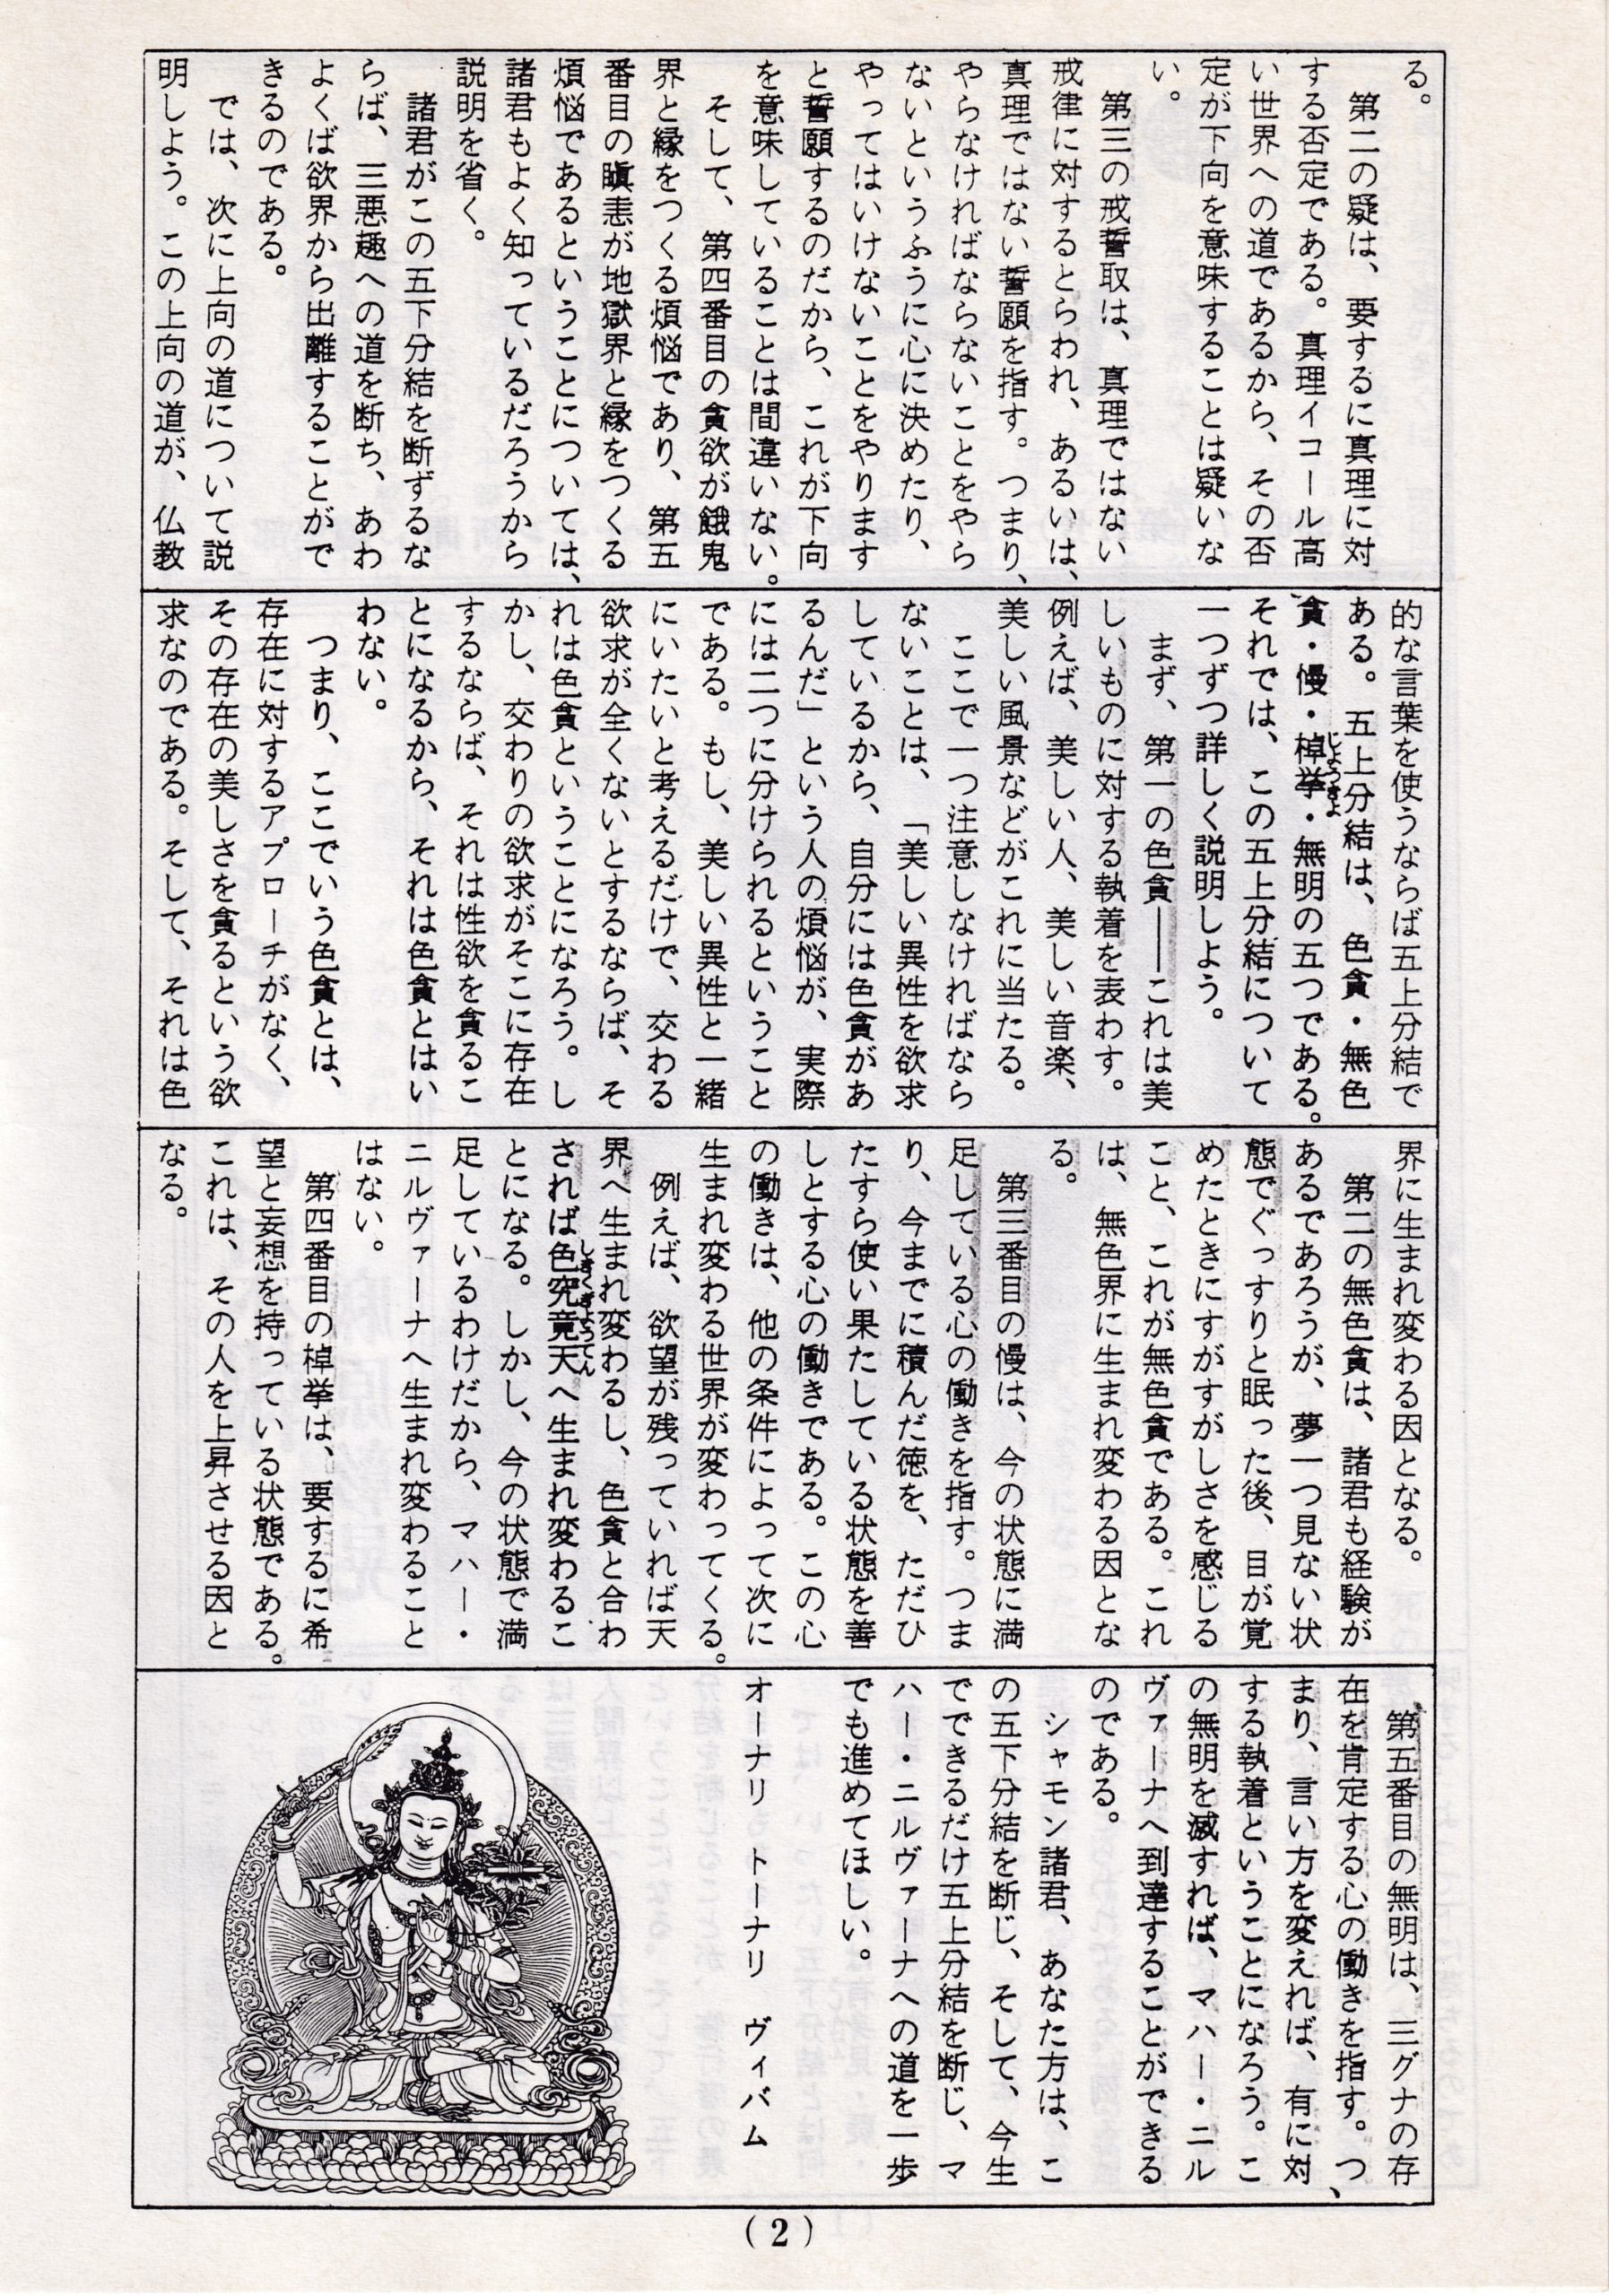 る。
　第二の疑は、要するに真理に対
する否定である。真理イコール高
い世界への道であるから、その否
定が下向を意味することは疑いな
い。
　第三の戒誓取は、真理ではない
戒律に対するとらわれ、あるいは、
真理ではない誓願を指す。つまり、
やらなければならないことをやら
ないというふうに心に決めたり、
やってはいけないことをやります
と誓願するのだから、これが下向
を意味していることは間違いない。
　そして、第四番目の貪欲が餓鬼
界と縁をつくる煩悩であり、第五
番目の瞋恚が地獄界と縁をつくる
煩悩であるということについては、
諸君もよく知っているだろうから
説明を省く。
　諸君がこの五下分結を断ずるな
らば、三悪趣への道を断ち、あわ
よくば欲界から出離することがで
きるのである。
　では、次に上向の道について説
明しよう。この上向の道が、仏教
的な言葉を使うならば五上分結で
ある。五上分結は、色貪・無色
貪・慢・棹挙・無明の五つである。
じょうきょ
それでは、この五上分結について
一つずつ詳しく説明しよう。
　まず、第一の色貪――これは美
しいものに対する執着を表わす。
例えば、美しい人、美しい音楽、
美しい風景などがこれに当たる。
　ここで一つ注意しなければなら
ないことは、「美しい異性を欲求
しているから、自分には色貪があ
るんだ」という人の煩悩が、実際
には二つに分けられるということ
である。もし、美しい異性と一緒
にいたいと考えるだけで、交わる
欲求が全くないとするならば、そ
れは色貪ということになろう。し
かし、交わりの欲求がそこに存在
するならば、それは性欲を貪るこ
とになるから、それは色貪とはい
わない。
　つまり、ここでいう色貪とは、
存在に対するアプローチがなく、
その存在の美しさを貪るという欲
求なのである。そして、それは色
界に生まれ変わる因となる。
　第二の無色貪は、諸君も経験が
あるであろうが、夢一つ見ない状
態でぐっすりと眠った後、目が覚
めたときにすがすがしさを感じる
こと、これが無色貪である。これ
は、無色界に生まれ変わる因とな
る。
　第三番目の慢は、今の状態に満
足している心の働きを指す。つま
り、今までに積んだ徳を、ただひ
たすら使い果たしている状態を善
しとする心の働きである。この心
の働きは、他の条件によって次に
生まれ変わる世界が変わってくる。
　例えば、欲望が残っていれば天
界へ生まれ変わるし、色貪と合わ
されば色究竟天へ生まれ変わるこ
しきくぎょうてん
とになる。しかし、今の状態で満
足しているわけだから、マハー・
ニルヴァーナへ生まれ変わること
はない。
　第四番目の棹挙は、要するに希
望と妄想を持っている状態である。
これは、その人を上昇させる因と
なる。
　第五番目の無明は、三グナの存
在を肯定する心の働きを指す。つ
まり、言い方を変えれば、有に対
する執着ということになろう。こ
の無明を滅すれば、マハー・ニル
ヴァーナへ到達することができる
のである。
　シャモン諸君、あなた方は、こ
の五下分結を断じ、そして、今生
でできるだけ五上分結を断じ、マ
ハー・ニルヴァーナへの道を一歩
でも進めてほしい。
オーナリ　トーナリ　ヴィバム
(2)